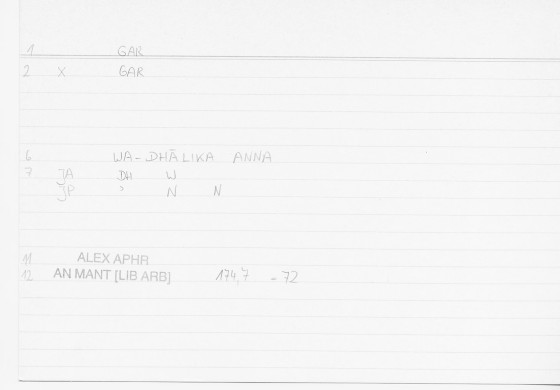 1 GAR
2 X GAR
6 WA-DHĀLIKA ANNA
7 JA DH W
JP " N N
11 ALEX APHR
12 AN MANT [LIB ARB] 174,7 - 72